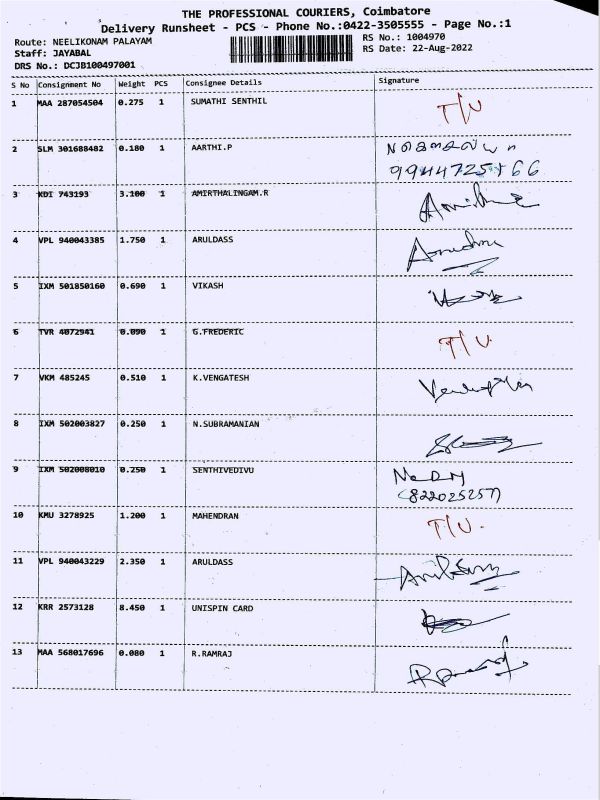 THE PROFESSIONAL COURIERS, Coimbatore
Delivery Runsheet - PCS - Phone No.:0422-3505555 - Page No.:1
Route: NEELIKONAM PALAYAM
RS No.: 1004970
Staff: JAYABAL
RS Date: 22-Aug-2022
DRS No.: DCJB100497001
S No Consignment No Weight PCS Consignee Details Signature
1 MAA 287054504 0.275 1 SUMATHI SENTHIL T/U
2 SLM 301688482 0.180 1 AARTHI.P
3 KDI 743193 3.100 1 AMIRTHALINGAM.R
4 VPL 940043385 1.750 1 ARULDASS
5 IXM 501850160 0.690 1 VIKASH
6 TVR 4072941 0.090 1 G.FREDERIC T/U.
7 VKM 485245 0.510 1 K.VENGATESH
8 IXM 502003827 0.250 1 N.SUBRAMANIAN
9 IXM 502008010 0.250 1 SENTHIVEDIVU
10 KMU 3278925 1.200 1 MAHENDRAN T/U.
11 VPL 940043229 2.350 1 ARULDASS
12 KRR 2573128 8.450 1 UNISPIN CARD
13 MAA 568017696 0.080 1 R.RAMRAJ